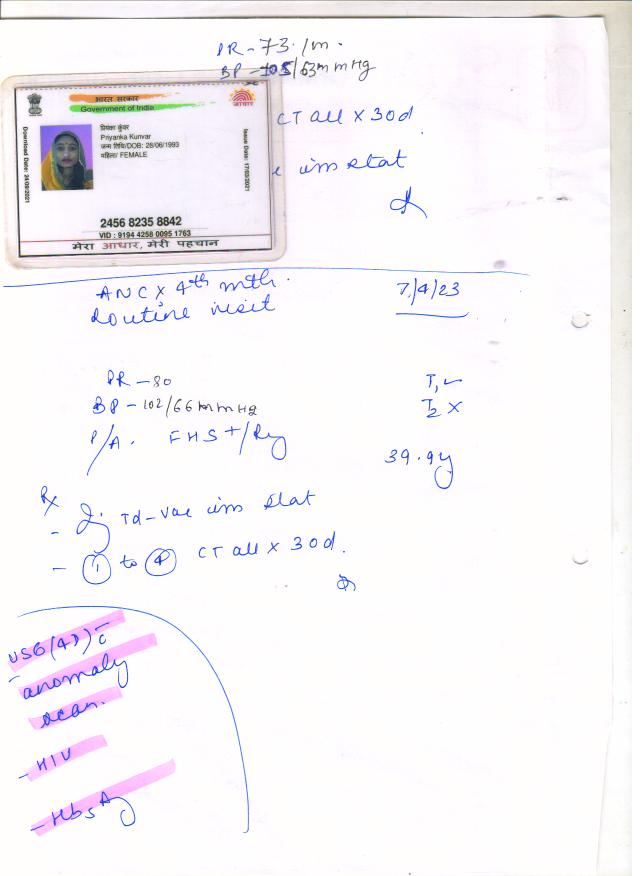 PR - 73 /m.
BP - 105/63 mmHg
भारत सरकार
Government of India
आधार
प्रियंका कुंवर
Priyanka Kunvar
जन्म तिथि/DOB: 28/06/1993
महिला/ FEMALE
Download Date: 24/09/2021
Issue Date: 17/03/2021
2456 8235 8842
VID : 9194 4258 0095 1763
मेरा आधार, मेरी पहचान
CT all x 30d
im stat
ANC x 4th mth. 7/4/23
Routine visit
PR - 80 T1 ✓
BP - 102/66 mmHg T2 x
P/A. FHS +/Reg
Rx
- Inj. Td-Vac im stat
- ① to ④ CT all x 30d.
USG (4D) c̄
anomaly
scan.
- HIV
- HbsAg